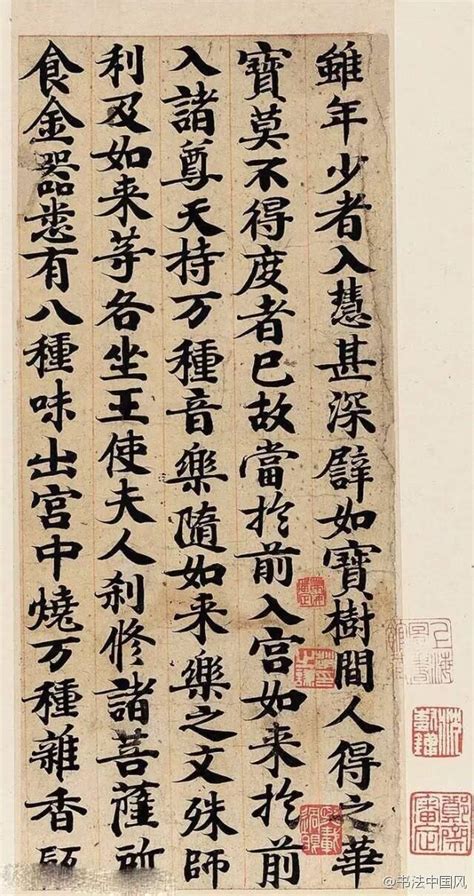 雖年少者入慧甚深譬如寶樹間人得之華
寶莫不得度者已故當扵前入宮如来扵前
入諸尊天持万種音樂隨如来樂之文殊師
利及如来䓁各坐王使夫人剎修諸菩薩所
食金器悉有八種味出宮中燒万種雜香
@书法中国风